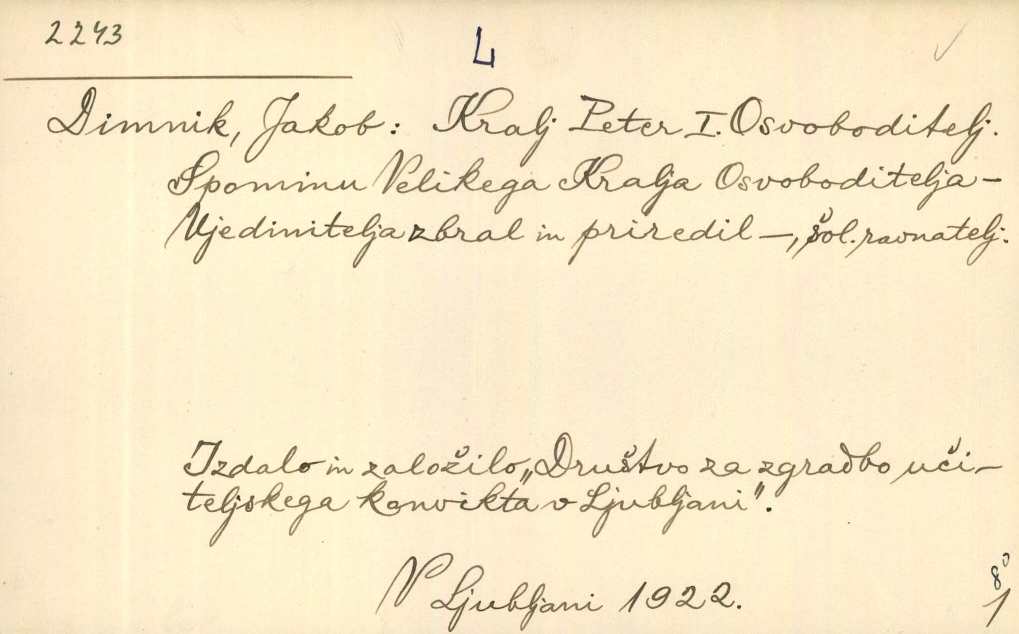 2243
L
Dimnik, Jakob: Kralj Peter I. Osvoboditelj.
Spominu Velikega Kralja Osvoboditelja-
Ujedinitelja zbral in priredil —, šol. ravnatelj.
Izdalo in založilo „Društvo za zgradbo uči-
teljskega konvikta v Ljubljani".
V Ljubljani 1922.
8°
1